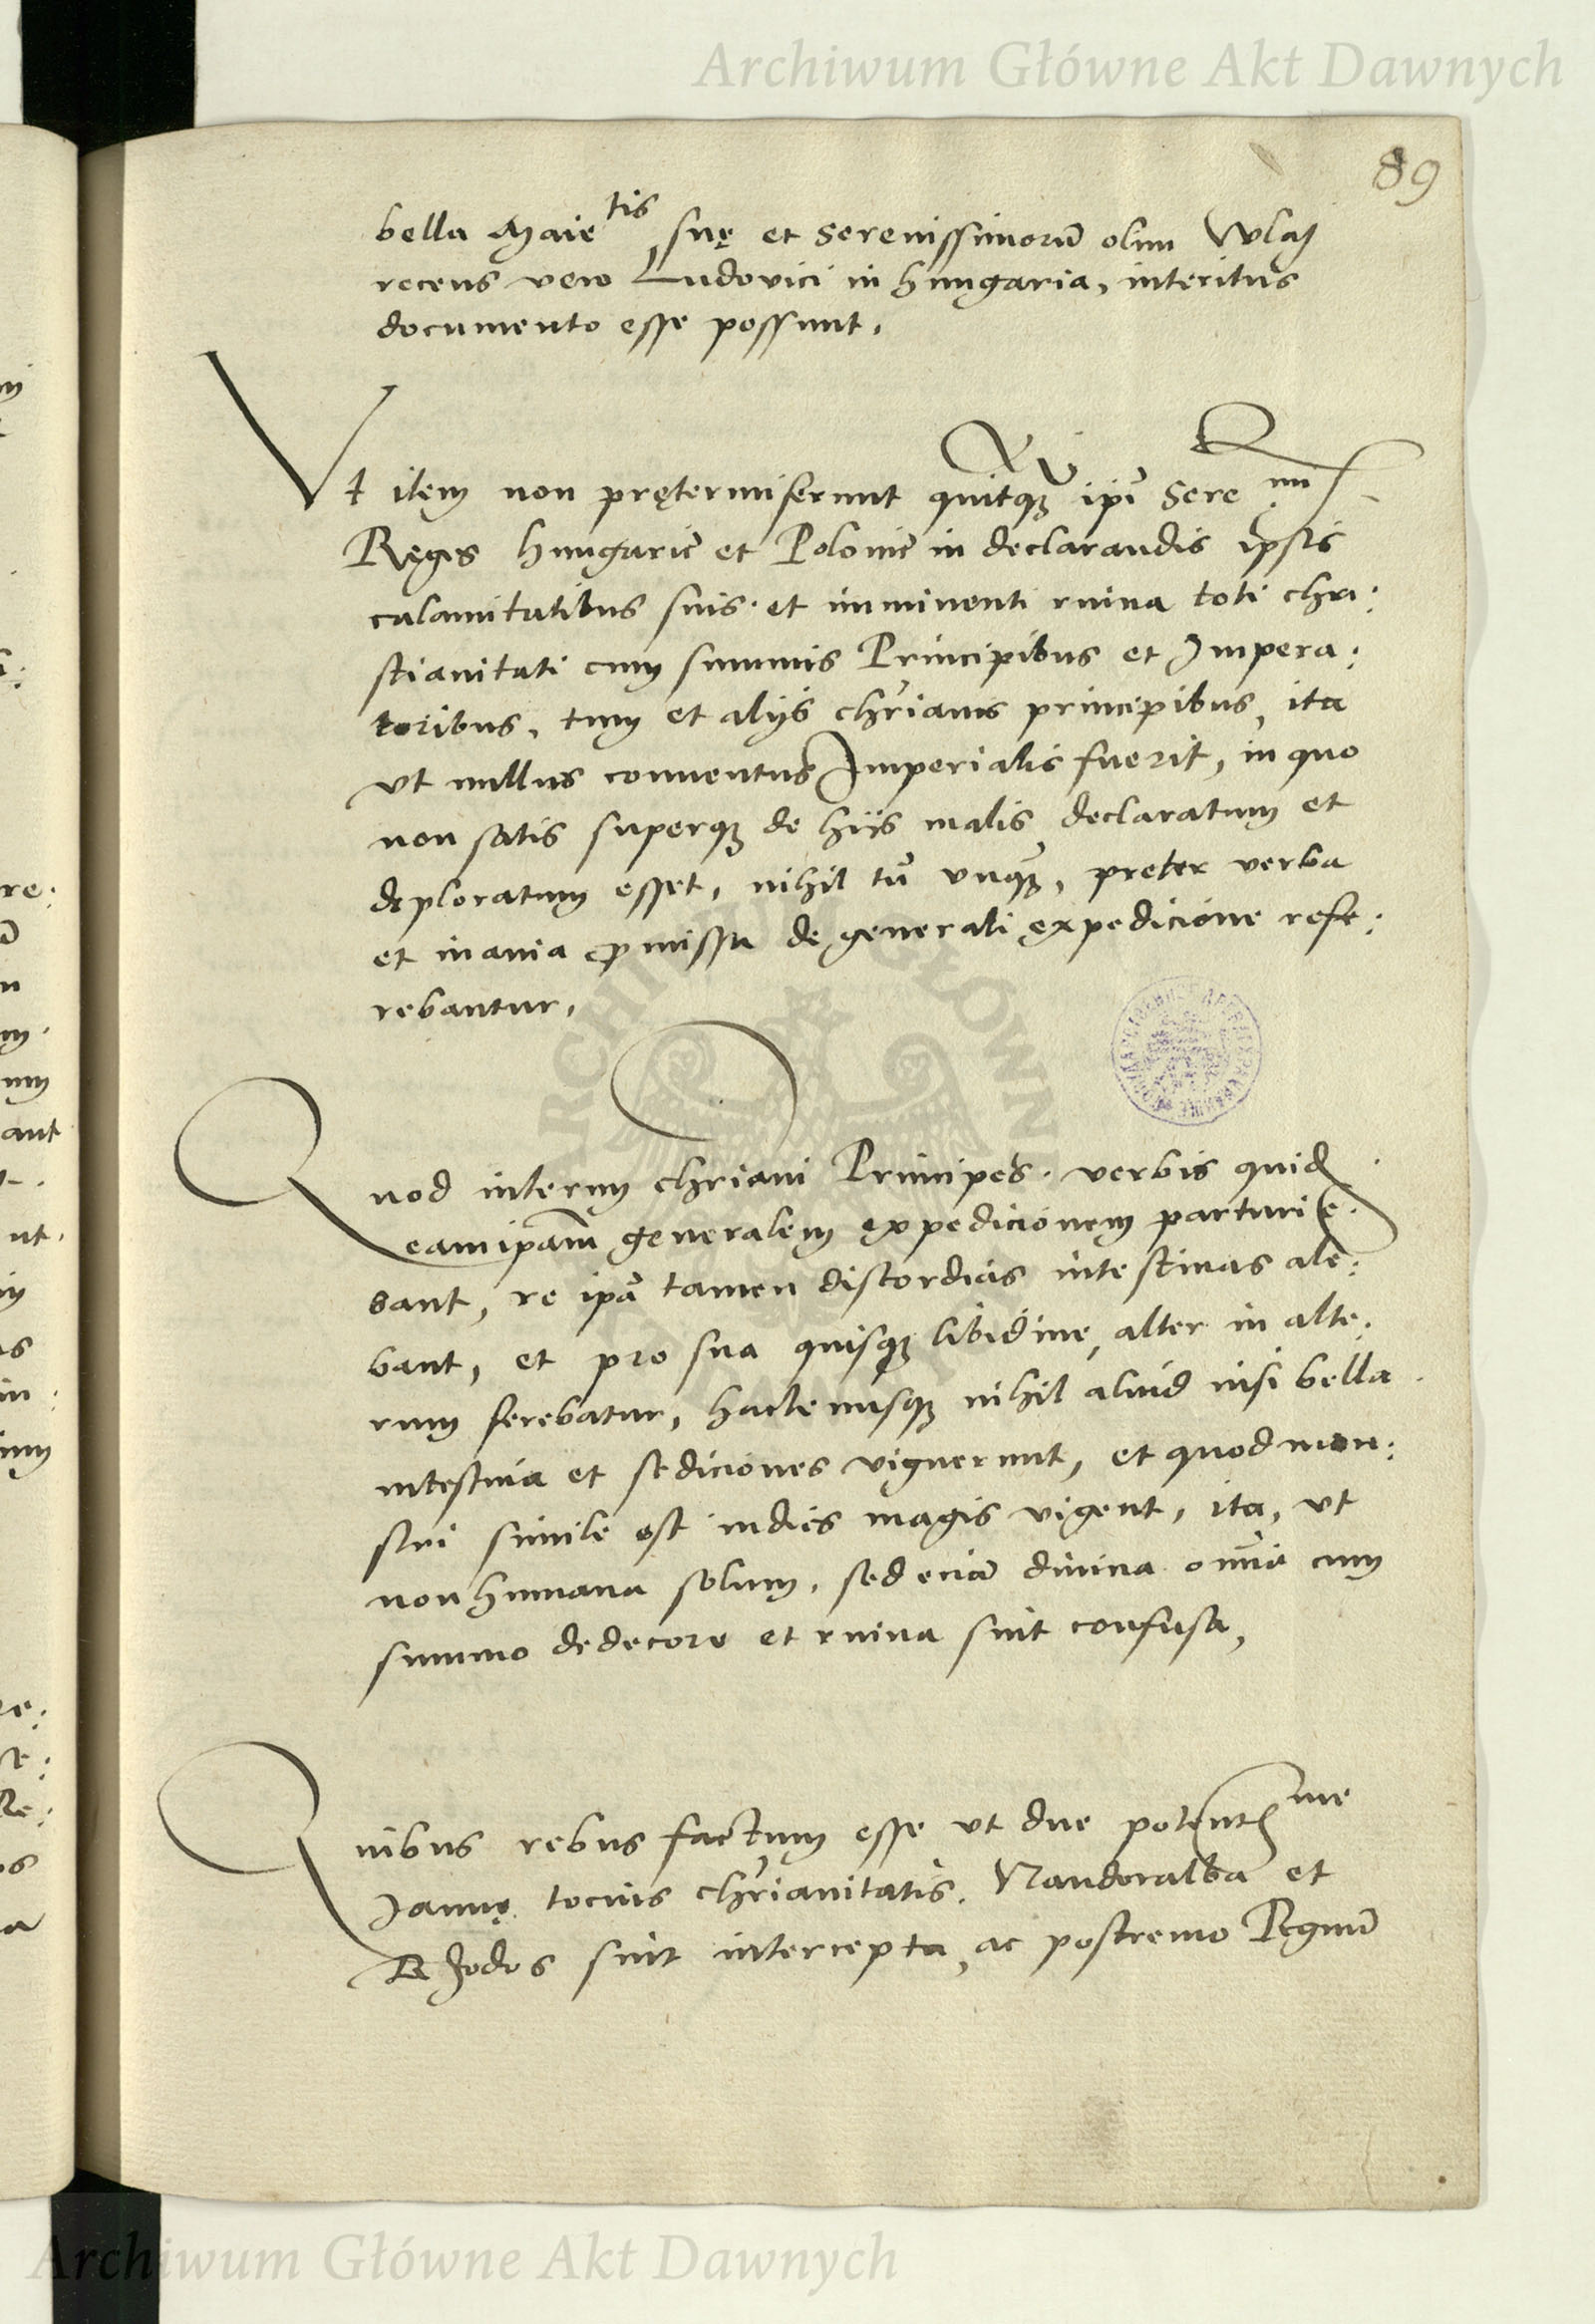 Archiwum Główne Akt Dawnych
89
bella Maie^tis suę et Serenissimorū olim Wlad
recens vero Ludovici in Hungaria, interitus
documento esse possunt.
Vt item non prętermiserunt quitqꝫ ip̄i Sere^mi
Reges Hungariē et Poloniē in declarandis ipsis
calamitatibus suis. et imminenti ruina toti chri:
stianitati cum summis Principibus et Impera:
toribus, tum et alijs chr̄ianis principibus, ita
vt nullus conuentus Imperialis fuerit, in quo
non satis superqꝫ de hijs malis declaratum et
deploratum esset, nihil tn̄ vnqꝫ, preter verba
et inania ꝓmissa de generali expedicione refe:
rebantur.
Quod interim chriani Principes. verbis quid
eam ip̄am generalem expedicionem parturie.
bant, re ip̄a tamen discordias intestinas ale:
bant, et pro sua quisqꝫ libidine, alter in alte:
rum ferebatur, hactenusqꝫ nihil aliud nisi bella
intestina et sediciones viguerunt, et quod mon:
stri simile est indies magis vigent, ita, vt
non humana solum, sed eciā diuina omnia cum
summo dedecore et ruina sint confusa,
Quibus rebus factum esse vt due potent^me
Ianuę tocius chr̄ianitatis. Nandoralba et
Rhodos sint intercepta, ac postremo Regnū
Archiwum Główne Akt Dawnych